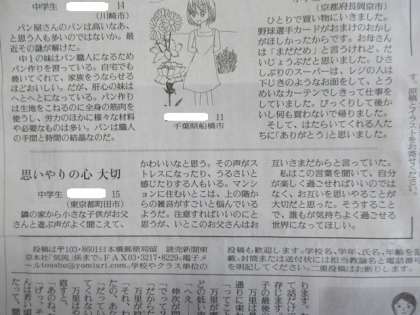 中学生　14
（川崎市）
パン屋さんのパンは高いなあ、
と思う人も多いのではないか。最
近その謎が解けた。
中１の妹はパン職人になるため
パン作りを習っている。自宅でも
焼いてくれて、家族をうならせる
ほどおいしい。だが、肝心の妹は
へとへとになっている。パン作り
は生地をこねるのに全身の筋肉を
使うし、労力のほかに様々な材料
や必要なものは多い。パン職人
の手間と時間の結晶なのだ。
11
千葉県船橋市
（京都府長岡京市）
ひとりで買い物にいきました。
野球選手カードがおまけのおかし
がほしかったからです。お母さん
は「まだだめ」と言うけれど、だ
いじょうぶだと思いました。ひさ
しぶりのスーパー、レジの人は
下じきのようなお面をして、とう
めいなカーテンでしきって仕事を
していました。びっくりして後か
いし何も買わないで帰りました。
そして、はたらいてくれる人た
ちに「ありがとう」と思いました。
思いやりの心 大切
中学生　15
（東京都町田市）
隣の家から小さな子供がお父
さんと遊ぶ声がよく聞こえて、
かわいいなと思う。その声がス
トレスになったり、うるさいと
感じたりする人もいる。マンシ
ョンに住むいとこは、上の階か
らの雑音がすごいと悩んでいる
ようだ。注意すればいいのにと
思うが、いとこのお父さんはお
互いさまだからと言っていた。
私はこの言葉を聞いて、自分
が楽しく過ごせればいいのでは
なく、お互いを思いやることが
大切だと思った。そうすること
で、誰もが気持ちよく過ごせる
世界になってほしい。
投稿は〒103-8601日本橋郵便局留　読売新聞東
京本社「気流」係まで。FAX03・3217・8229、電子メ
ールtousho@yomiuri.com。学校やクラス単位の
投稿も歓迎します。学校名、学年、氏名、年齢を記
載、封筒または送付状には担当教諭名と電話番号
を明記してください。二重投稿はお断りします。